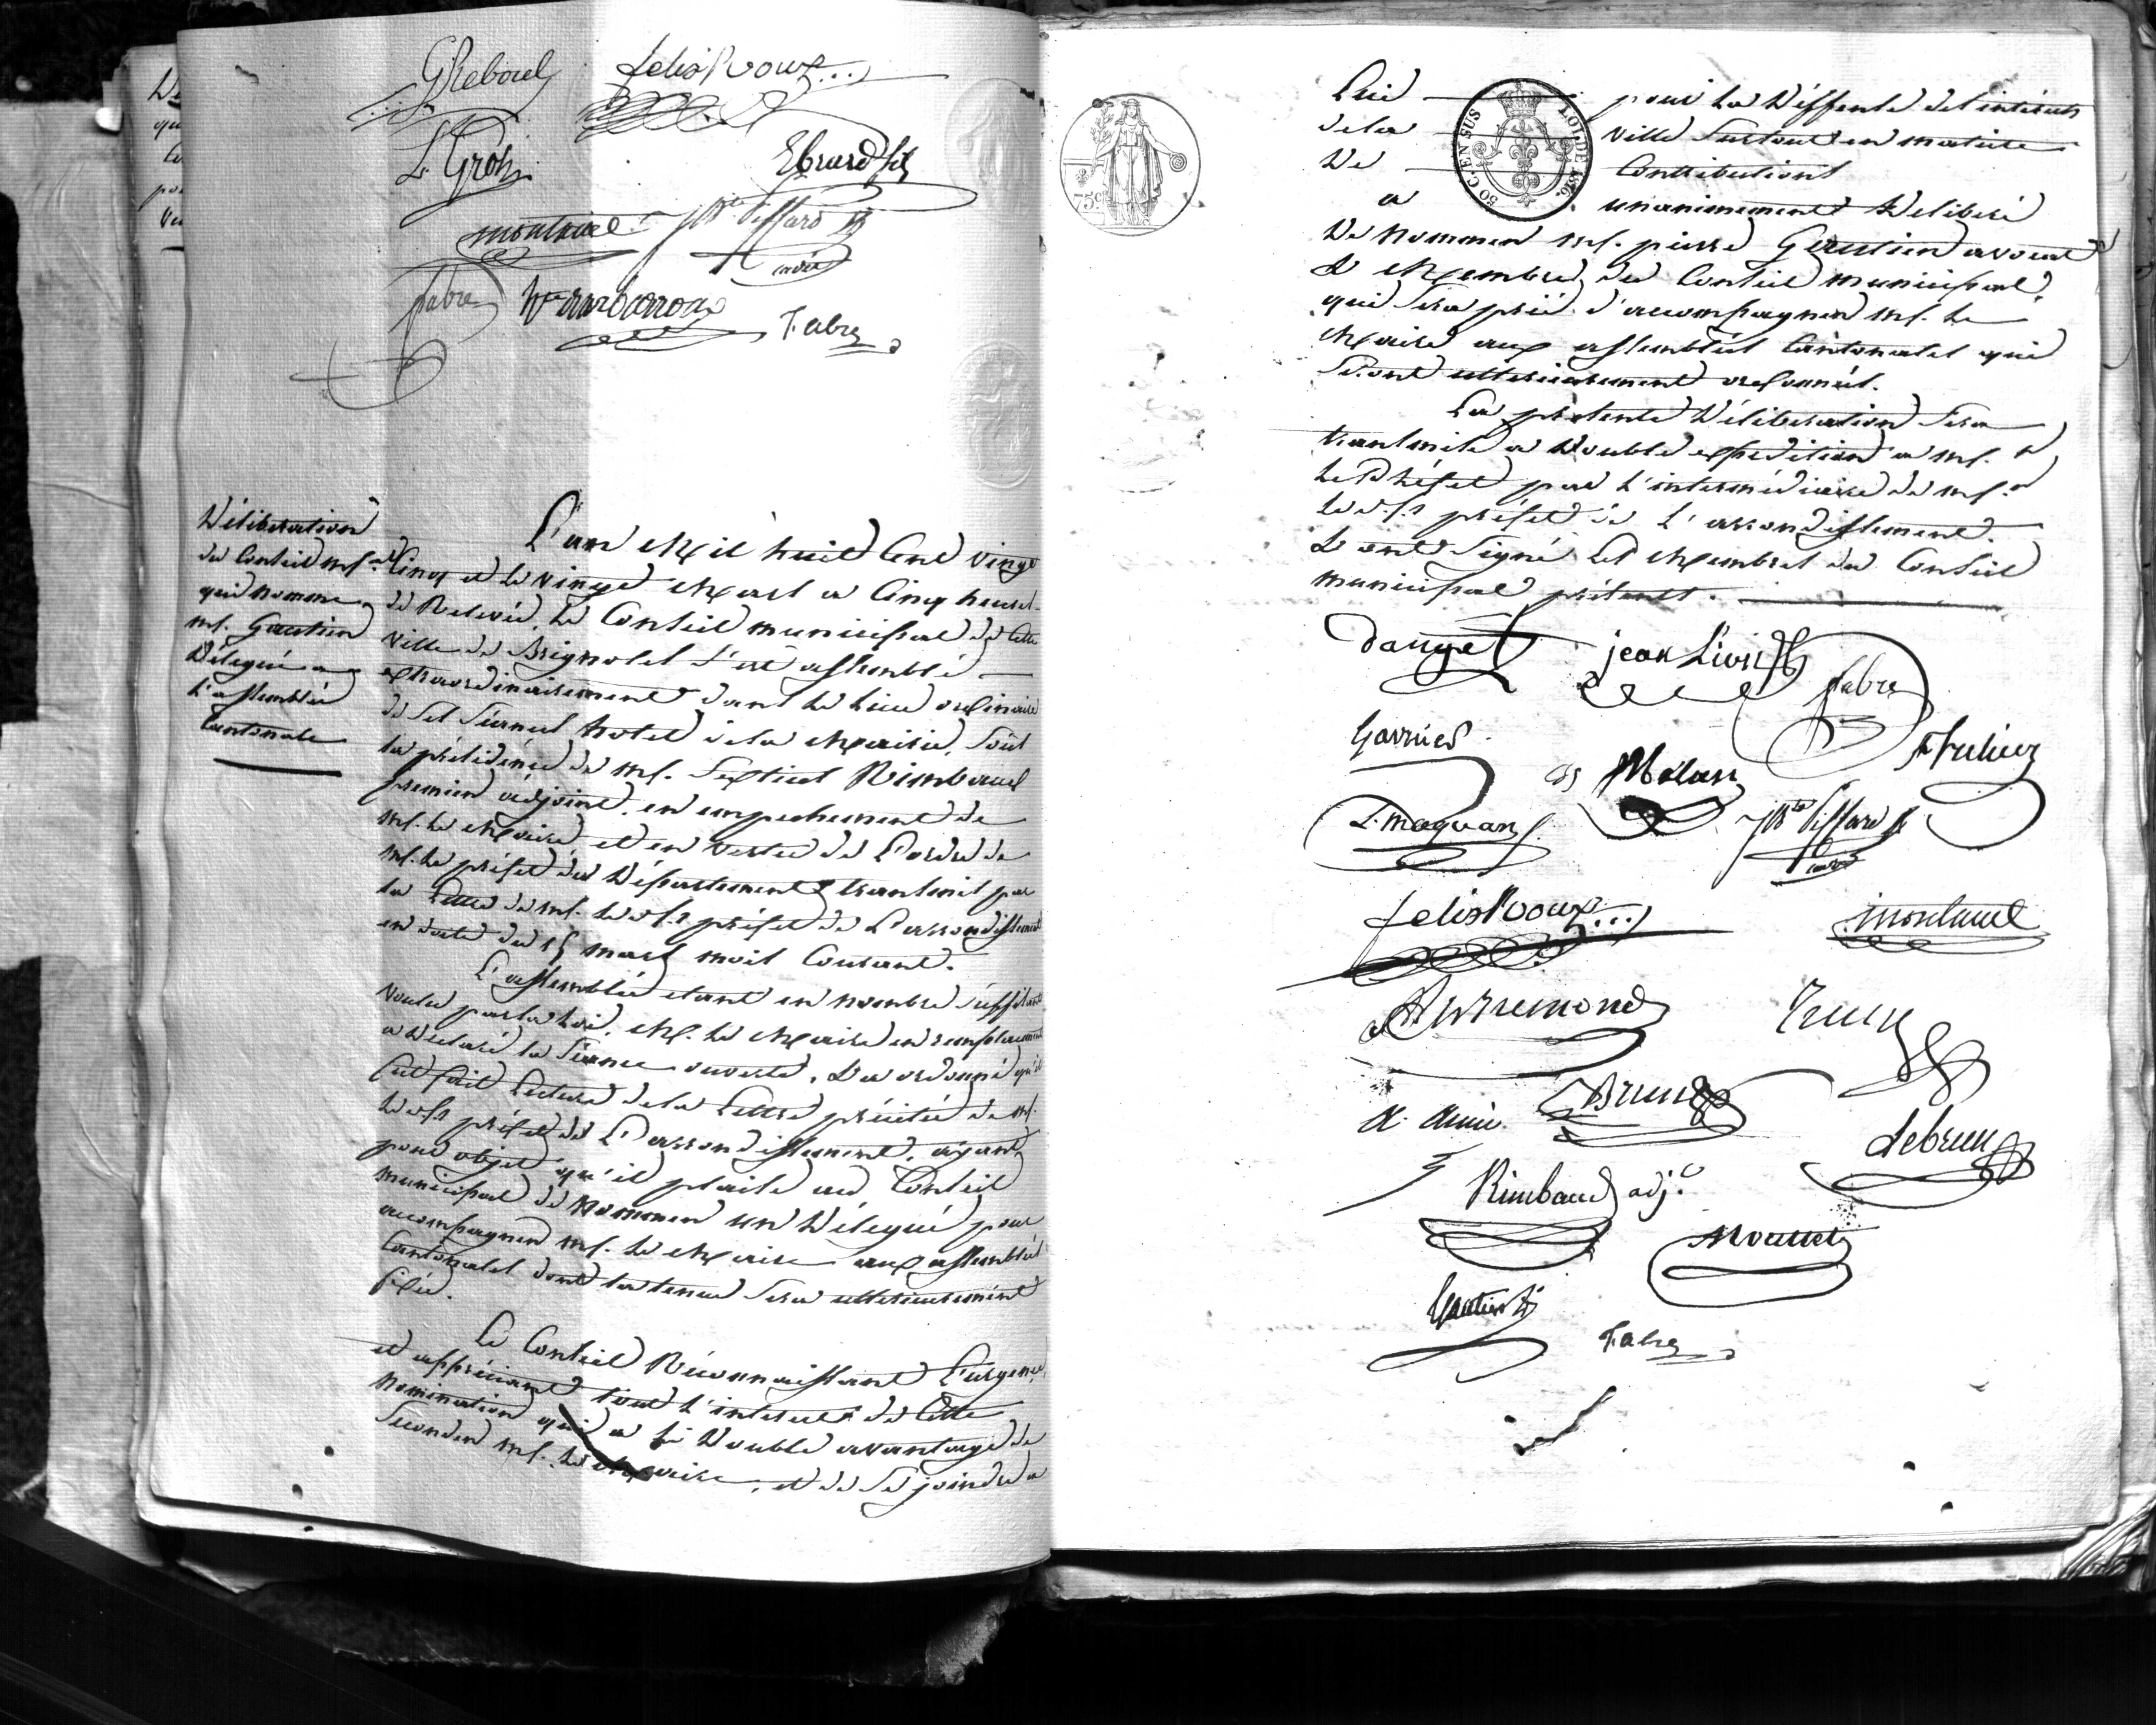 G Reboul
felix Roux
L. Gros
Ebrard fils
montaud
fabre
T. abre
Délibération
du Conseil mpal
qui nomme
mr. Gautier
Délégué a
l'assemblée
Cantonale
L'an Mil huit Cent vingt
Cinq et le vingt Mars a Cinq heures
de Relevée, le Conseil municipal de Cette
ville de Brignoles s'est assemblé
extraordinairement dans le lieu ordinaire
de ses séances hotel de la Mairie, sous
la présidence de mr. Rimbaud
premier adjoint, en empechement de
mr. le Maire, et en vertu de l'ordre de
mr. le préfet du Département transmis par
la lettre de mr. le s. préfet de l'arrondissement
en date du 15 mars mois Courant.
L'assemblée etant en nombre suffisant
voulu par la loi, Mr. le Maire en remplacement
a déclaré la séance ouverte, & a ordonné qu'il
fut fait lecture de la lettre précitée de mr.
le s. préfet de l'arrondissement, ayant
pour objet qu'il plaise au Conseil
municipal de nommer un Délégué pour
accompagner mr. le Maire aux assemblées
Cantonales dont la tenue sera ulterieurement
fixée.
Le Conseil Réconnaissant l'urgence,
et appréciant tout l'interet de Cette
nomination qui a le double avantage de
seconder mr. le Maire, et de se joindre a
Lui pour la déffense des intérêts
de la ville surtout en matiere
de Contributions
a unanimement deliberé
de nommer mr. pierre Gautier avoué
& Membre du Conseil municipal,
qui sera prié d'accompagner mr. le
Maire aux assemblées Cantonales qui
seront ulterieurement ordonnées.
La présente Délibération sera
transmise a double expedition a mr.
le Préfet par l'intermédiaire de mr.
le s. préfet de l'arrondissement.
& ont signé les Membres du Conseil
municipal présents.
50 C. EN SUS
LOI DE 1816.
75 c.
danget
jean Livon
fabre
Garnier
L. maquan
felix Roux
montaud
Brun
Lebrun
Rimbaud adj.
Gautier
T. abre